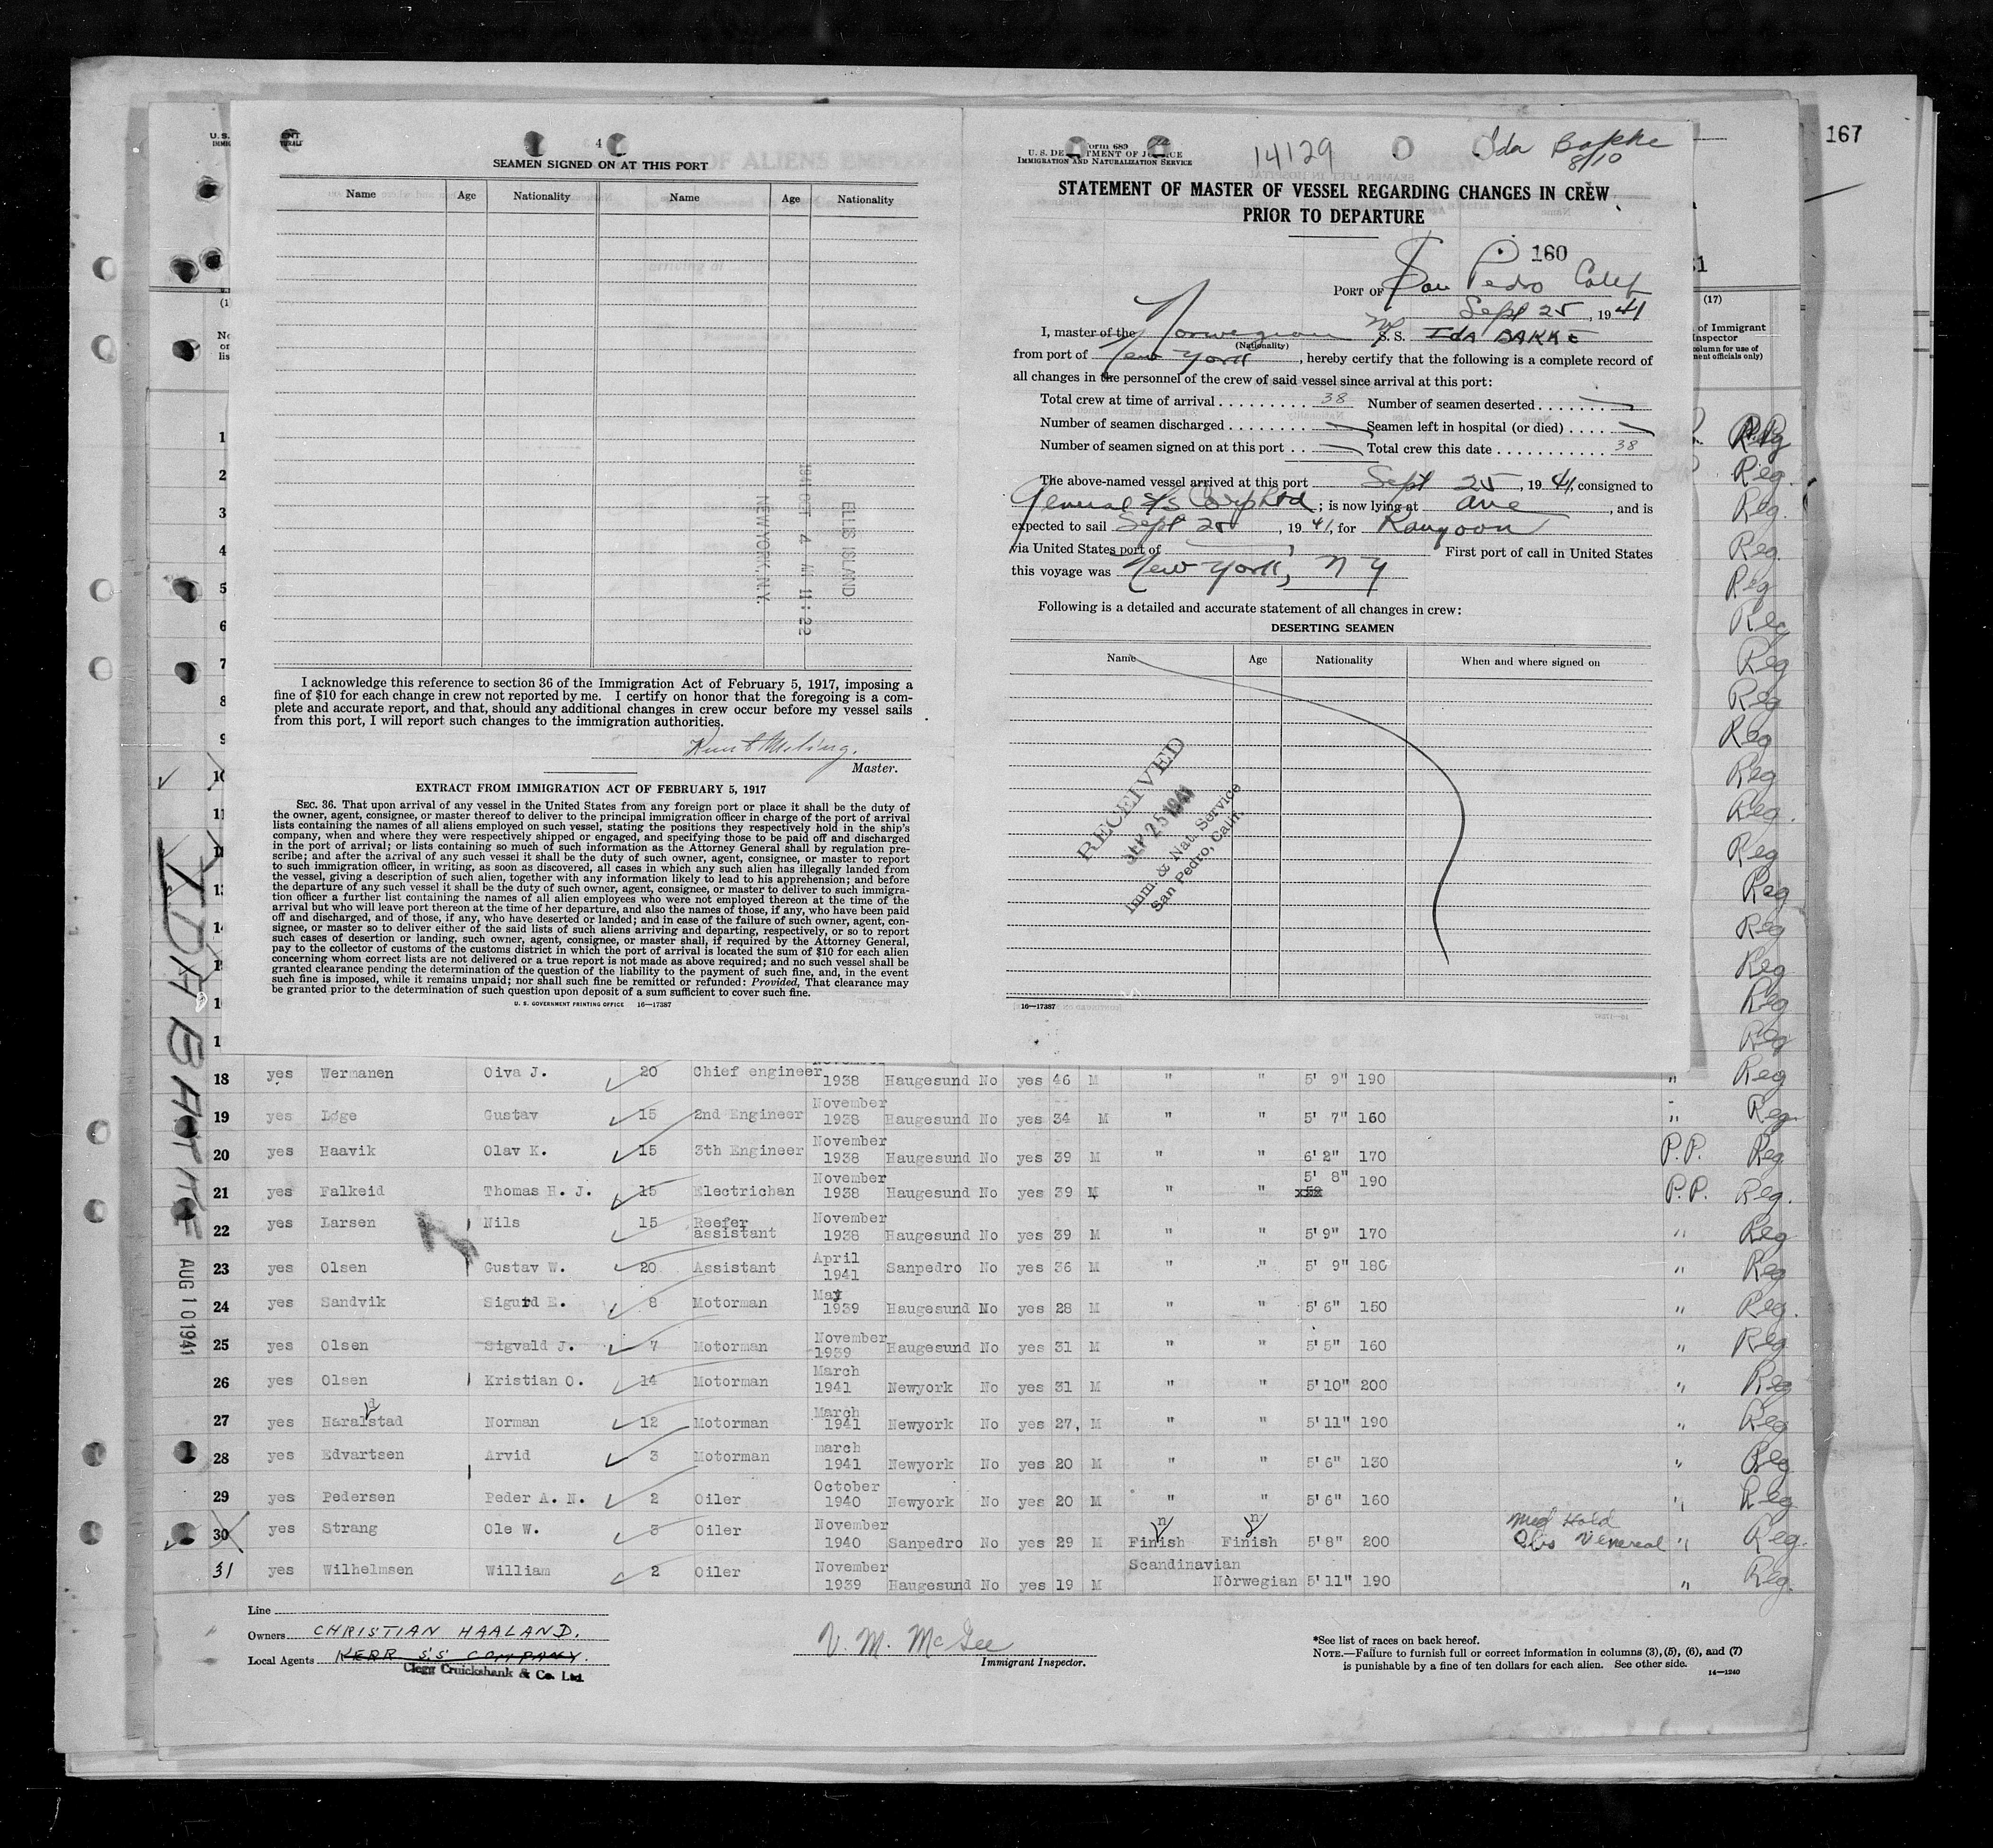 167
4
SEAMEN SIGNED ON AT THIS PORT
Name Age Nationality Name Age Nationality
ELLIS ISLAND
1941 OCT 4 11:22
NEW YORK, N.Y.
I acknowledge this reference to section 36 of the Immigration Act of February 5, 1917, imposing a
fine of $10 for each change in crew not reported by me. I certify on honor that the foregoing is a com-
plete and accurate report, and that, should any additional changes in crew occur before my vessel sails
from this port, I will report such changes to the immigration authorities.
Master.
EXTRACT FROM IMMIGRATION ACT OF FEBRUARY 5, 1917
SEC. 36. That upon arrival of any vessel in the United States from any foreign port or place it shall be the duty of
the owner, agent, consignee, or master thereof to deliver to the principal immigration officer in charge of the port of arrival
lists containing the names of all aliens employed on such vessel, stating the positions they respectively hold in the ship's
company, when and where they were respectively shipped or engaged, and specifying those to be paid off and discharged
in the port of arrival; or lists containing so much of such information as the Attorney General shall by regulation pre-
scribe; and after the arrival of any such vessel it shall be the duty of such owner, agent, consignee, or master to report
to such immigration officer, in writing, as soon as discovered, all cases in which any such alien has illegally landed from
the vessel, giving a description of such alien, together with any information likely to lead to his apprehension; and before
the departure of any such vessel it shall be the duty of such owner, agent, consignee, or master to deliver to such immigra-
tion officer a further list containing the names of all alien employees who were not employed thereon at the time of the
arrival but who will leave port thereon at the time of her departure, and also the names of those, if any, who have been paid
off and discharged, and of those, if any, who have deserted or landed; and in case of the failure of such owner, agent, con-
signee, or master so to deliver either of the said lists of such aliens arriving and departing, respectively, or so to report
such cases of desertion or landing, such owner, agent, consignee, or master shall, if required by the Attorney General,
pay to the collector of customs of the customs district in which the port of arrival is located the sum of $10 for each alien
concerning whom correct lists are not delivered or a true report is not made as above required; and no such vessel shall be
granted clearance pending the determination of the question of the liability to the payment of such fine, and, in the event
such fine is imposed, while it remains unpaid; nor shall such fine be remitted or refunded: Provided, That clearance may
be granted prior to the determination of such question upon deposit of a sum sufficient to cover such fine.
U. S. GOVERNMENT PRINTING OFFICE 16—17387
Form 689
U. S. DEPARTMENT OF JUSTICE
IMMIGRATION AND NATURALIZATION SERVICE
14129
Ida Bakke
8/10
STATEMENT OF MASTER OF VESSEL REGARDING CHANGES IN CREW
PRIOR TO DEPARTURE
160
PORT OF San Pedro Calif
Sept 25, 1941
I, master of the Norwegian S. S. IDA BAKKE
(Nationality)
from port of New York, hereby certify that the following is a complete record of
all changes in the personnel of the crew of said vessel since arrival at this port:
Total crew at time of arrival 38 Number of seamen deserted
Number of seamen discharged Seamen left in hospital (or died)
Number of seamen signed on at this port Total crew this date 38
The above-named vessel arrived at this port Sept 25, 1941, consigned to
General S/S Corp Ltd; is now lying at , and is
expected to sail Sept 25, 1941, for Rangoon
via United States port of First port of call in United States
this voyage was New York, N Y
Following is a detailed and accurate statement of all changes in crew:
DESERTING SEAMEN
Name Age Nationality When and where signed on
RECEIVED
SEP 25 1941
Imm. & Nat. Service
San Pedro, Calif.
16—17387
(17)
of Immigrant
Inspector
IDA BAKKE
AUG 10 1941
18 yes Wermanen Oiva J. 20 Chief engineer 1938 Haugesund No yes 46 M " " 5' 9" 190 " Reg
19 yes Løge Gustav 15 2nd Engineer November 1938 Haugesund No yes 34 M " " 5' 7" 160 " Reg
20 yes Haavik Olav K. 15 3th Engineer November 1938 Haugesund No yes 39 M " " 6' 2" 170 P.P. Reg
21 yes Falkeid Thomas H. J. 15 Electrichan November 1938 Haugesund No yes 39 M " " 5' 8" 190 P.P. Reg.
22 yes Larsen Nils 15 Reefer assistant November 1938 Haugesund No yes 39 M " " 5' 9" 170 " Reg
23 yes Olsen Gustav W. 20 Assistant April 1941 Sanpedro No yes 36 M " " 5' 9" 180 " Reg
24 yes Sandvik Sigurd E. 8 Motorman May 1939 Haugesund No yes 28 M " " 5' 6" 150 " Reg.
25 yes Olsen Sigvald J. 7 Motorman November 1939 Haugesund No yes 31 M " " 5' 5" 160 " Reg
26 yes Olsen Kristian O. 14 Motorman March 1941 Newyork No yes 31 M " " 5' 10" 200 " Reg
27 yes Haralstad Norman 12 Motorman March 1941 Newyork No yes 27, M " " 5' 11" 190 " Reg
28 yes Edvartsen Arvid 3 Motorman march 1941 Newyork No yes 20 M " " 5' 6" 130 " Reg
29 yes Pedersen Peder A. N. 2 Oiler October 1940 Newyork No yes 20 M " " 5' 6" 160 " Reg
30 yes Strang Ole W. 3 Oiler November 1940 Sanpedro No yes 29 M Finish Finish 5' 8" 200 Med Hold Obs Venereal " Reg.
31 yes Wilhelmsen William 2 Oiler November 1939 Haugesund No yes 19 M Scandinavian Norwegian 5' 11" 190 " Reg.
Line
Owners CHRISTIAN HAALAND.
Local Agents KERR S.S. COMPANY.
Clegg Cruickshank & Co. Ltd.
V. M. McGee
Immigrant Inspector.
*See list of races on back hereof.
NOTE.—Failure to furnish full or correct information in columns (3), (5), (6), and (7)
is punishable by a fine of ten dollars for each alien. See other side.
14—1240